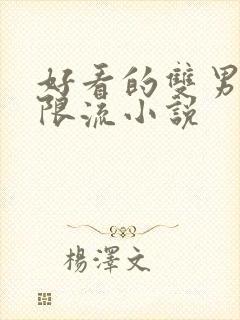 好看的雙男
限流小說
楊澤文